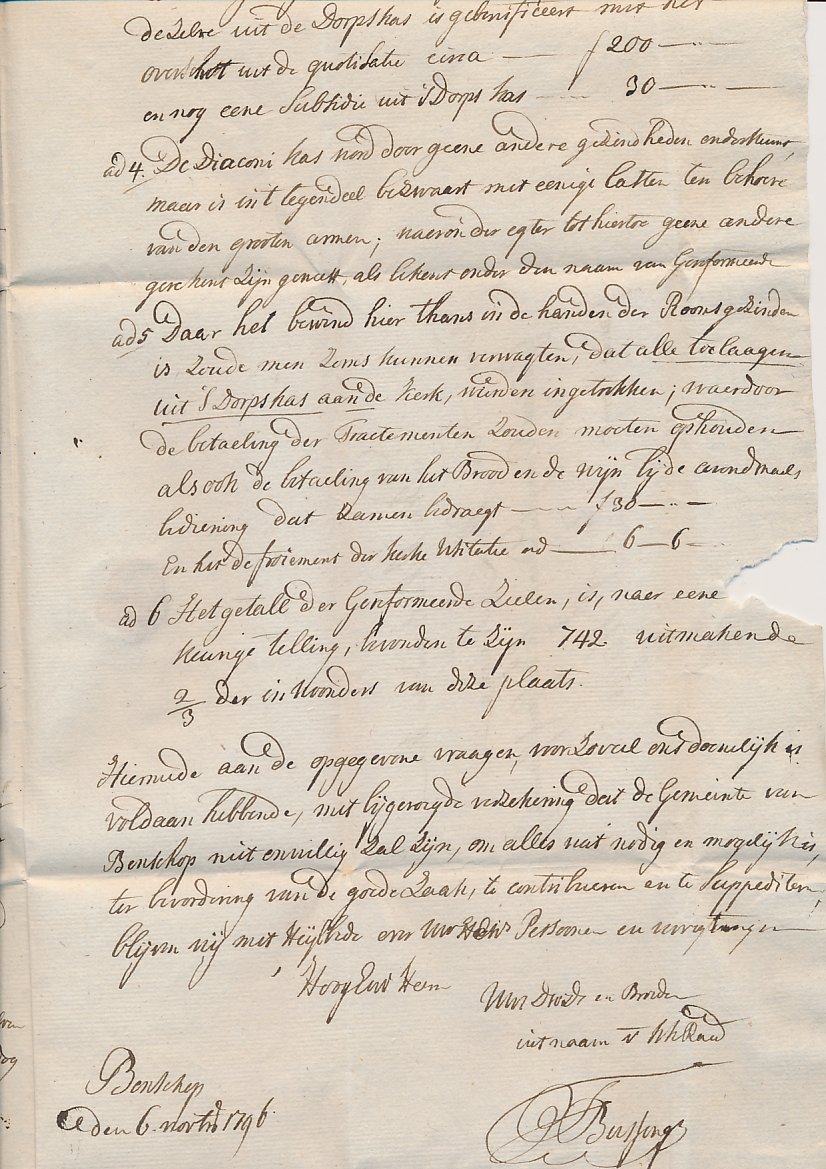 dezelve uit de Dorpskas is gebenificeert met het
overschot uit de quotisatie circa — ƒ 200 — „ —
en nog eene Subsidie uit 's Dorps kas — 30 — „ —
ad 4. De Diaconi kas word door geene andere gezindheden ondersteund
maar is in 't tegendeel bezwaart met eenige lasten ten behoeve
van den grooten armen; waeronder egter tot hiertoe geene andere
gerekent zijn geweest, als bekent onder den naam van Gereformeerde
ad 5 Daar het bewind hier thans in de handen der Roomsgezinden
is zoude men zeer kunnen verwagten, dat alle toelaagen
uit 's Dorpskas aan de Kerk, wierden ingetrokken; waerdoor
de betaeling der Tractementen zouden moeten ophouden
als ook de betaeling van het Brood en de wijn bij de avondmaels
bediening dat zamen bedraegt — ƒ 30 — „ —
En het defroiement der kerke visitatie ad — 6 — 6 —
ad 6 Het getall der Gereformeerde Zielen, is, naer eene
keurige telling, bevonden te zijn 742 uitmakende
2/3 der inwoonders van deze plaats.
Hiermede aan de opgegevene vraagen, voor zoveel ons doenelijk is
voldaan hebbende, met bijgevoegde verzekering dat de Gemeinte van
Benschop niet onwillig zal zijn, om alles wat nodig en mogelijk is,
ter bevordering van de goede zaak, te contribueren en te suppediteren
blijven wij met Heylbede over Uw Persoonen en verrigtungen
Hoog Eerw Heeren
Uw en Broeder
uit naam v kk Raad
Benschop
den 6 novbr 1796.